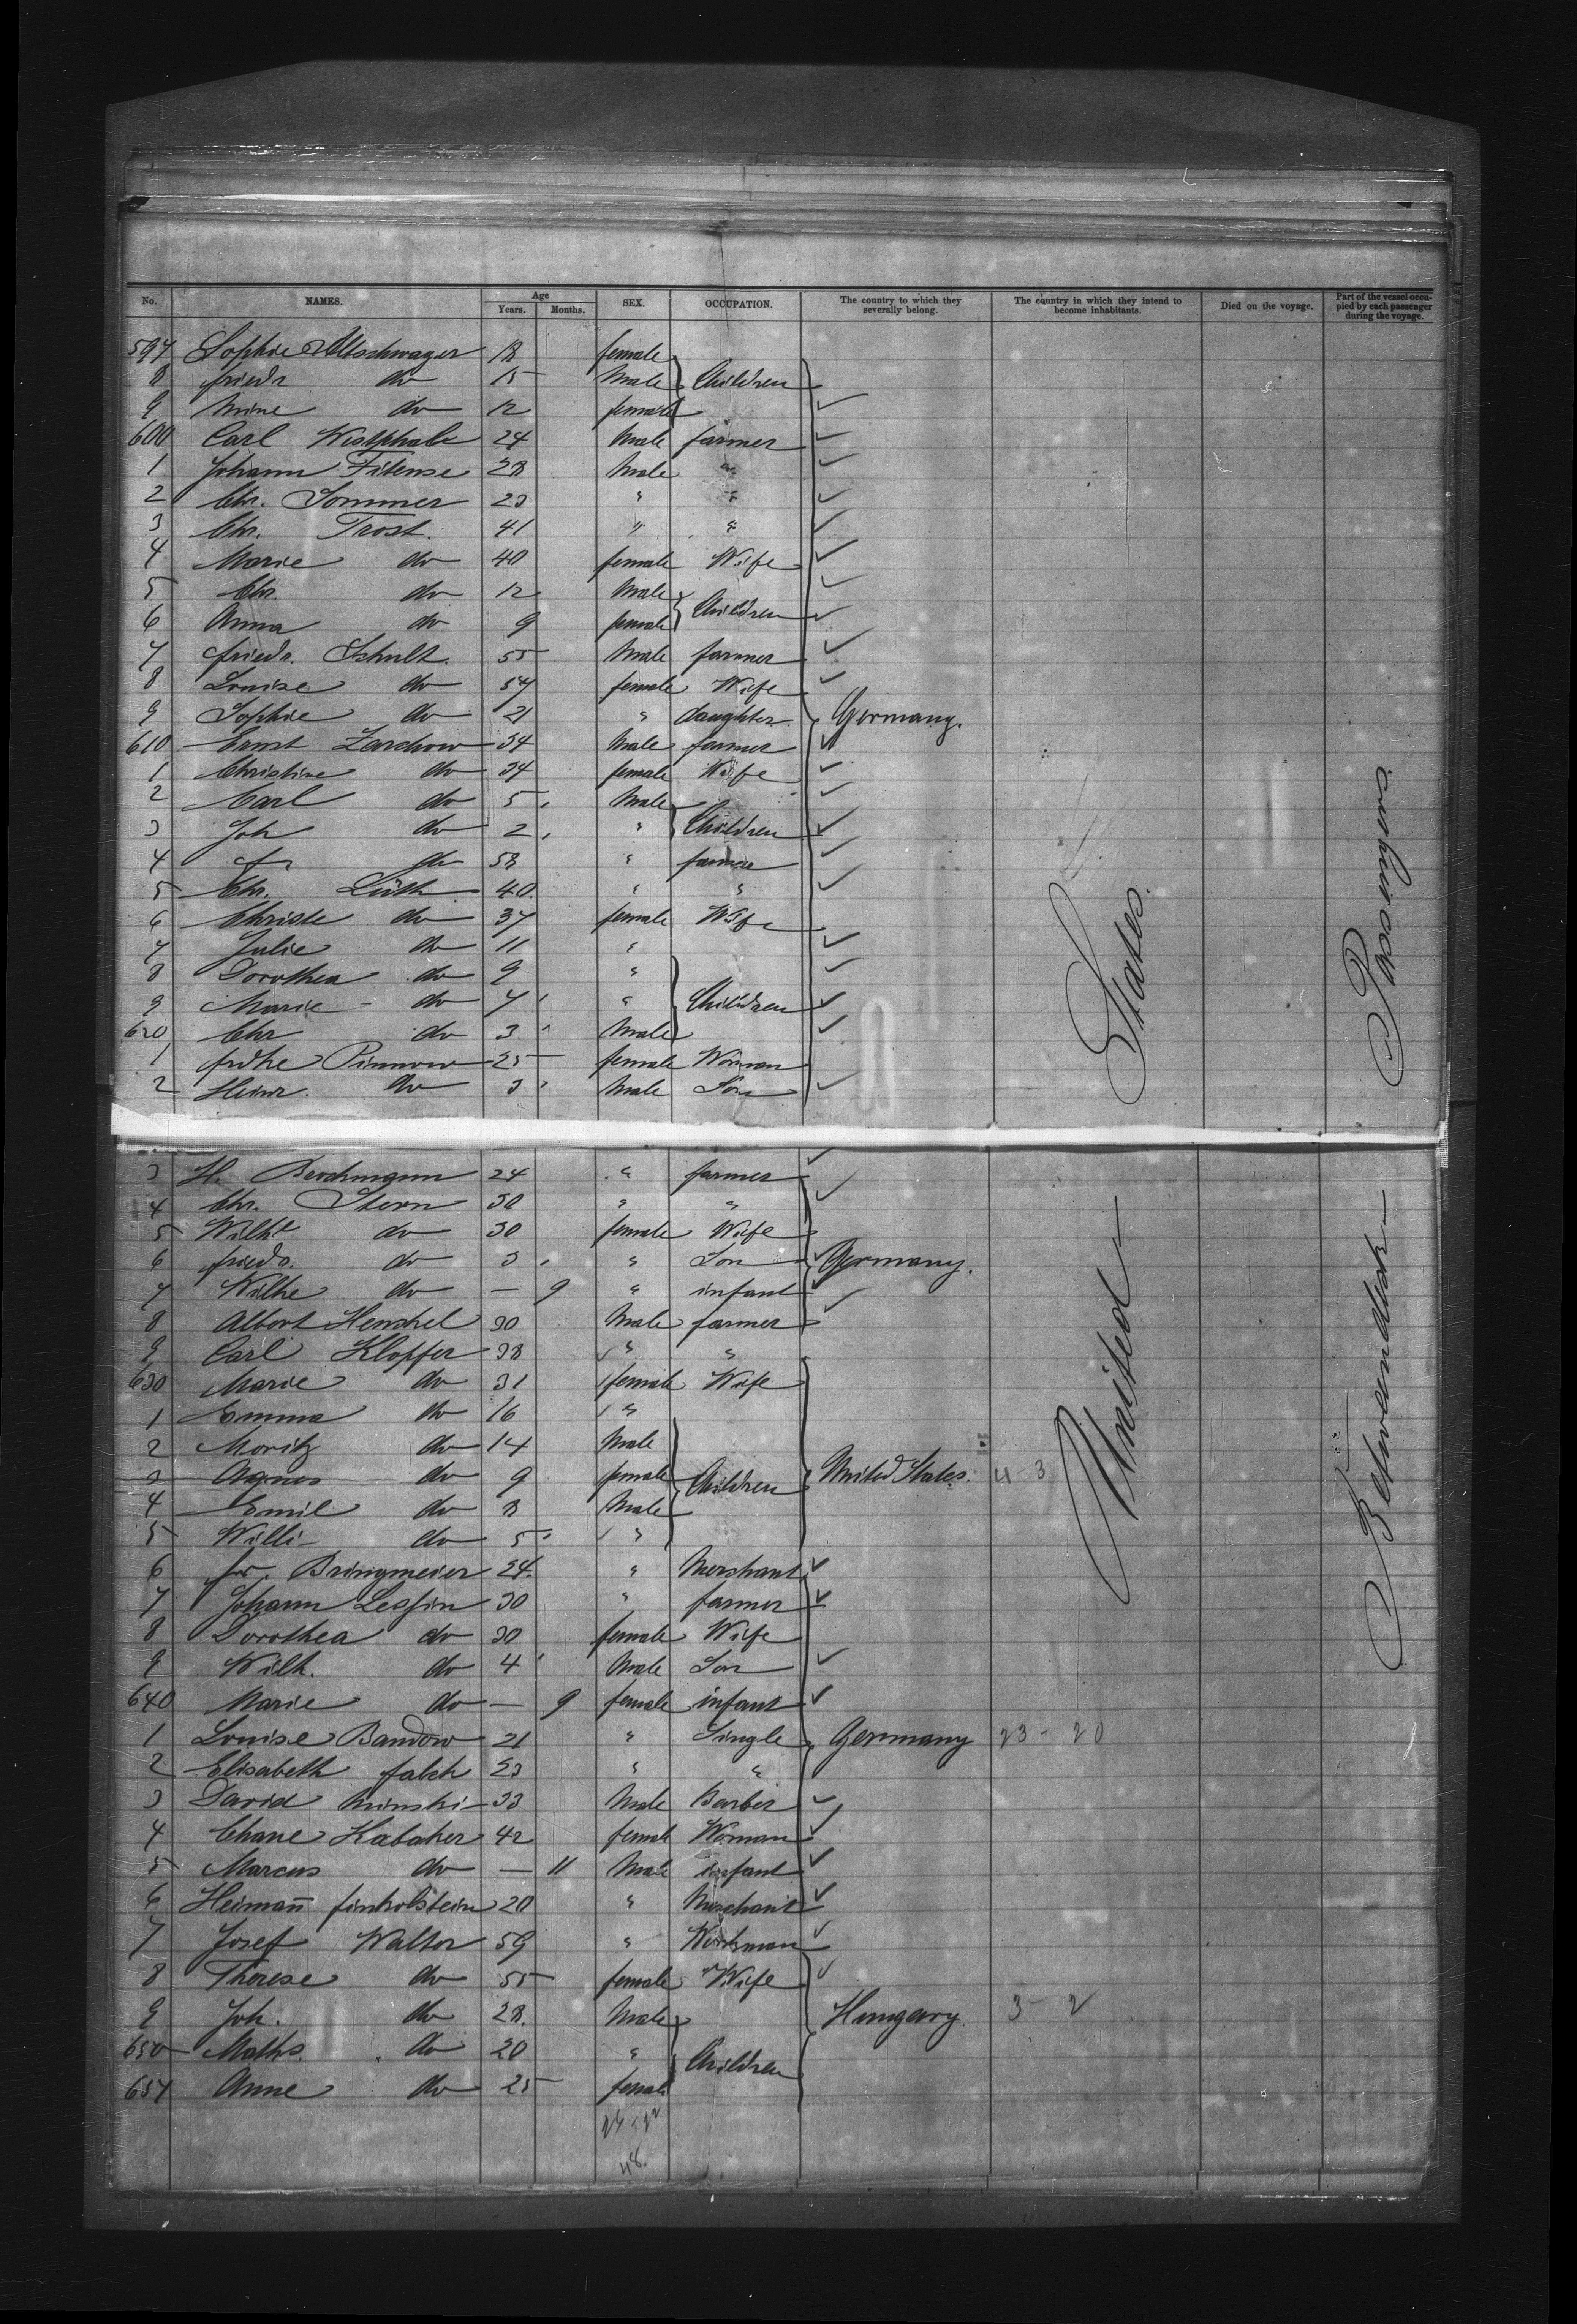 No. NAMES. Age Years. Months. SEX. OCCUPATION. The country to which they severally belong. The country in which they intend to become inhabitants. Died on the voyage. Part of the vessel occupied by each passenger during the voyage.
597 Sophie 18 female
8 friedr do 15 Male Children
9 Mine do 12 female
600 Carl Westphale 24 Male farmer
1 Johann 28 Male "
2 Chr. Sommer 23 " "
3 Chr. Trost. 41 " "
4 Marie do 40 female Wife
5 Chr. do 12 Male
6 Anna do 9 female Children
7 friedr. Schult. 55 Male farmer
8 Louise do 54 female Wife
9 Sophie do 21 " daughter Germany.
610 Ernst Zarchow 34 Male farmer
1 Christine do 34 female Wife
2 Carl do 5 Male
3 Joh do 2 " Children
4 fr do 58 " farmer
5 Chr. Lüth 40 " "
6 Christe do 37 female Wife
7 Julie do 11 "
8 Dorothea do 9 "
9 Marie do 7 " Children
620 Chr do 3 Male
1 frdke Pinnow 25 female Woman
2 Heinr. do 3 Male Son
States.
Passingers.
3 H. 24 " farmer
4 Chr. Stern 30 " "
5 Wilhe do 30 female Wife
6 friedr. do 3 " Son Germany.
7 Wilhe do — 9 " infant
8 Albert Henshel 30 Male farmer
9 Carl Klopfer 38 " "
630 Marie do 31 female Wife
1 Emma do 16 "
2 Moritz do 14 Male
3 Agnes do 9 female Children United States. 4 - 3
4 Emil do 8 Male
5 Willi do 5 "
6 fr. Bringmeier 24 " Mershant
7 Johann Lessin 30 " farmer
8 Dorothea do 30 female Wife
9 Wilh. do 4 Male Son
640 Marie do — 9 female infant
1 Louise Bandow 21 " Single Germany 23 - 20
2 Elisabeth falck 23 " "
3 David Minski 33 Male Barber
4 Chane Kabaker 42 female Woman
5 Marcus do — 11 Male infant
6 Heimañ finkolstein 20 " Merchant
7 Josef Walter 59 " Workman
8 Therese do 55 female Wife
9 Joh. do 28 Male Hungary. 3 - 2
650 Maths. do 20 " Children
651 Anne do 25 female
48.
United
Betweendeck